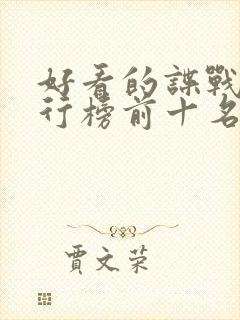 好看的諜戰
行榜前十名
賈文荣